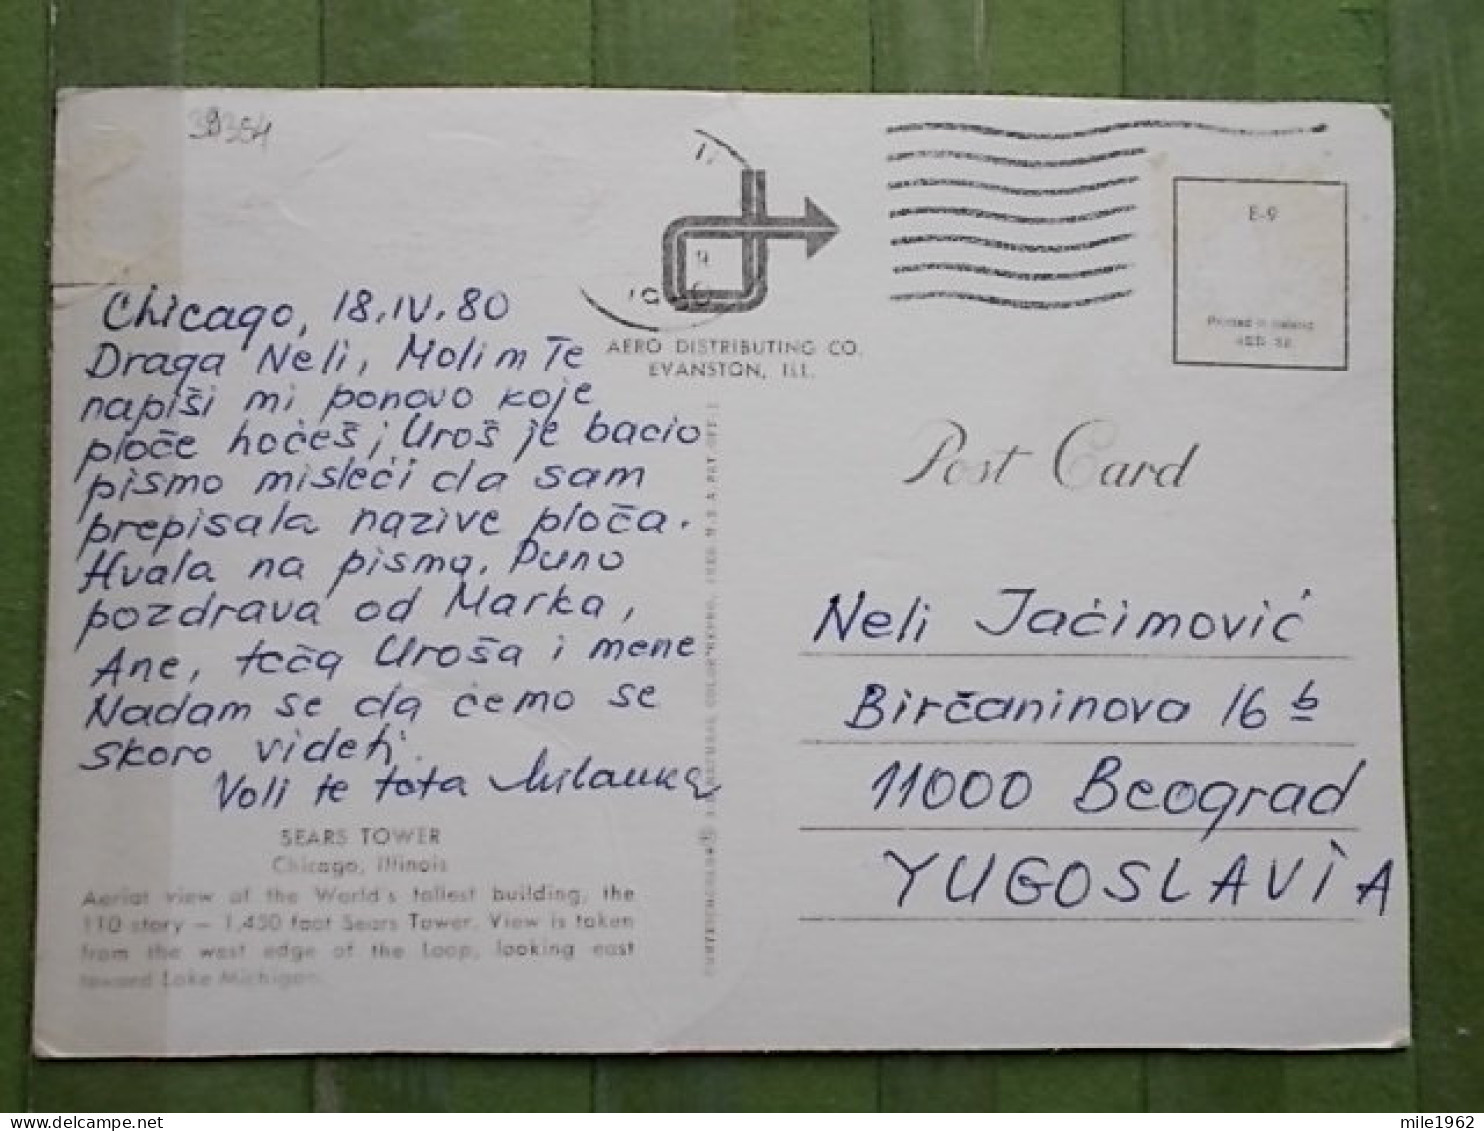 39354
E-9
Printed in Ireland
AERO DISTRIBUTING CO.
EVANSTON, ILL.
Post Card
Chicago, 18.IV.80
Draga Neli, Molim Te
napiši mi ponovo koje
ploče hoćeš; Uroš je bacio
pismo misleći da sam
prepisala nazive ploča.
Hvala na pismu. Puno
pozdrava od Marka,
Ane, teča Uroša i mene
Nadam se da ćemo se
skoro videti.
Voli te teta Milanka
SEARS TOWER
Chicago, Illinois
Aerial view of the World's tallest building, the
110 story — 1,450 foot Sears Tower. View is taken
from the west edge of the Loop, looking east
toward Lake Michigan.
Neli Jaćimović
Birčaninova 16 b
11000 Beograd
YUGOSLAVIA
mile1962